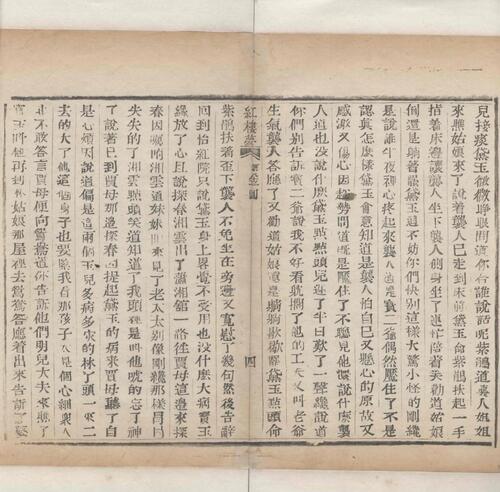 見接痰盒黛玉微微睜眼問道你和誰說話呢紫鵑道襲人姐姐
來瞧姑娘來了說着襲人已走到床前黛玉命紫鵑扶起一手
指着床邊讓襲人坐下襲人側身坐了連忙陪着笑勸道姑娘
倒還是躺着罷黛玉道不妨你們快別這樣大驚小怪的剛纔
是說誰半夜裡心疼起來襲人道是寶二爺偶然魘住了不是
認真怎麼樣黛玉會意知道是襲人怕自己又懸心的原故又
感激又傷心因趁勢問道既是魘住了不聽見他還說什麼襲
人道也沒說什麼黛玉點點頭兒遲了半日歎了一聲纔說道
你們別告訴寶二爺說我不好看耽擱了他的工夫又叫老爺
生氣襲人答應了又勸道姑娘還是躺躺歇歇罷黛玉點頭命
紅樓夢 回 四
紫鵑扶着歪下襲人不免坐在旁邊又寬慰了幾句然後告辭
回到怡紅院只說黛玉身上略覺不受用也沒什麼大病寶玉
纔放了心且說探春湘雲出了瀟湘館一路往賈母這邊來探
春因囑咐湘雲道妹妹回來見了老太太別像剛纔那樣冒冒
失失的了湘雲點頭笑道知道了我頭裡是叫他唬的忘了神
了說着已到賈母那邊探春因提起黛玉的病來賈母聽了自
是心煩因說道偏是這兩個玉兒多病多災的林丫頭一來二
去的大了他這個身子也要緊我看那孩子太是個心細衆人
也不敢答言賈母便向鴛鴦道你告訴他們明兒大夫來瞧了
寶玉叫他再到林姑娘那屋裡去鴛鴦答應着出來告訴了婆